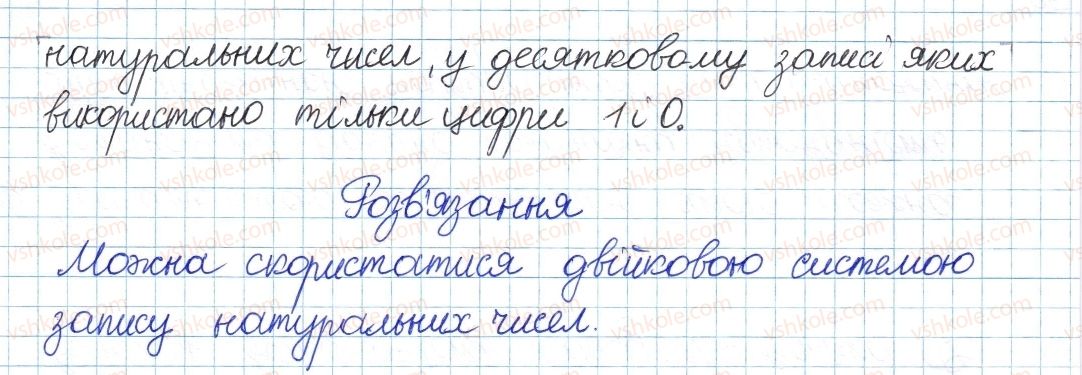 натуральних чисел, у десятковому записі яких
використано тільки цифри 1 і 0.
Розв'язання
Можна скористатися двійковою системою
запису натуральних чисел.